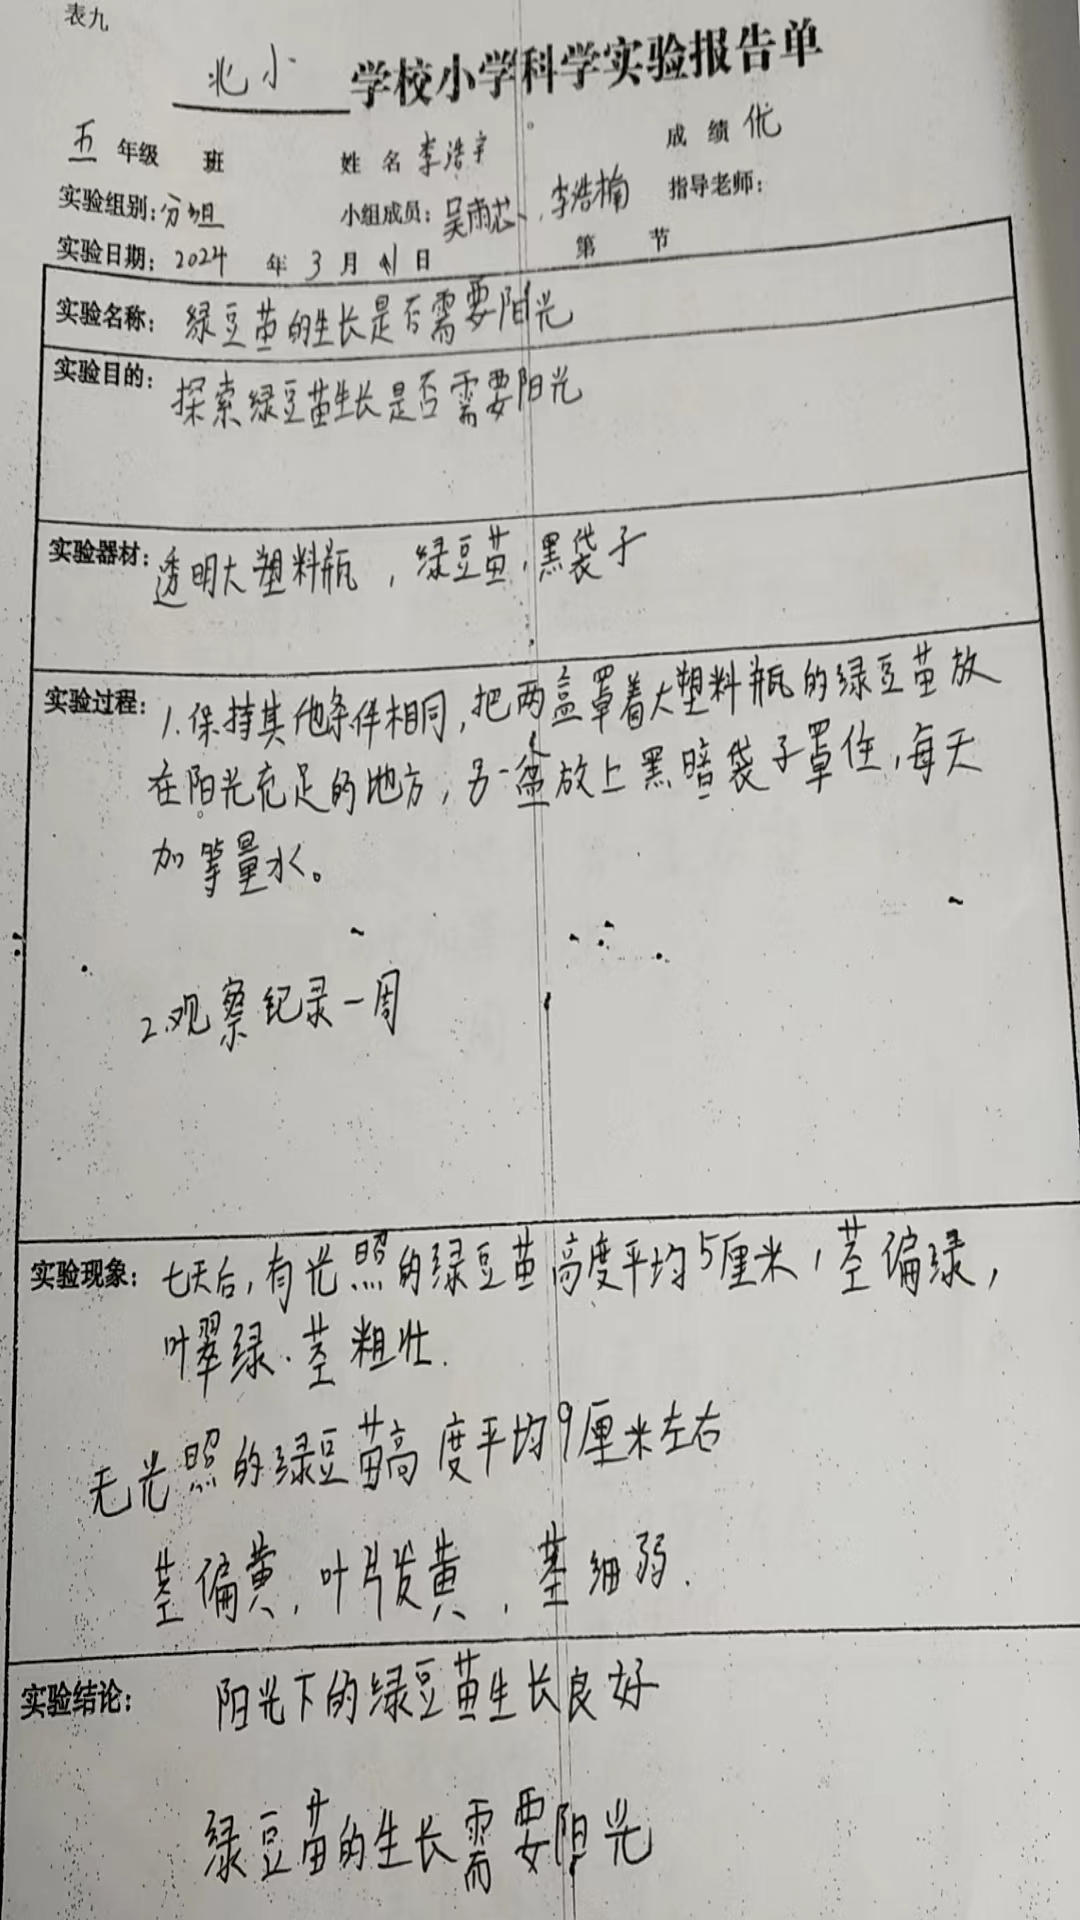 表九
北小 学校小学科学实验报告单
五 年级 班 姓名 李浩宇 成绩 优
实验组别：分组 小组成员：吴雨芯、李浩楠 指导老师：
实验日期：2024 年 3 月 日 第 节
实验名称：绿豆苗的生长是否需要阳光
实验目的：探索绿豆苗生长是否需要阳光
实验器材：透明大塑料瓶，绿豆苗，黑袋子
实验过程：1.保持其他条件相同，把两盆罩着大塑料瓶的绿豆苗放
在阳光充足的地方，另一盆放上黑暗袋子罩住，每天
加等量水。
2.观察纪录一周
实验现象：七天后，有光照的绿豆苗高度平均5厘米，茎偏绿，
叶翠绿.茎粗壮.
无光照的绿豆苗高度平均9厘米左右
茎偏黄，叶片发黄，茎细弱.
实验结论：阳光下的绿豆苗生长良好
绿豆苗的生长需要阳光